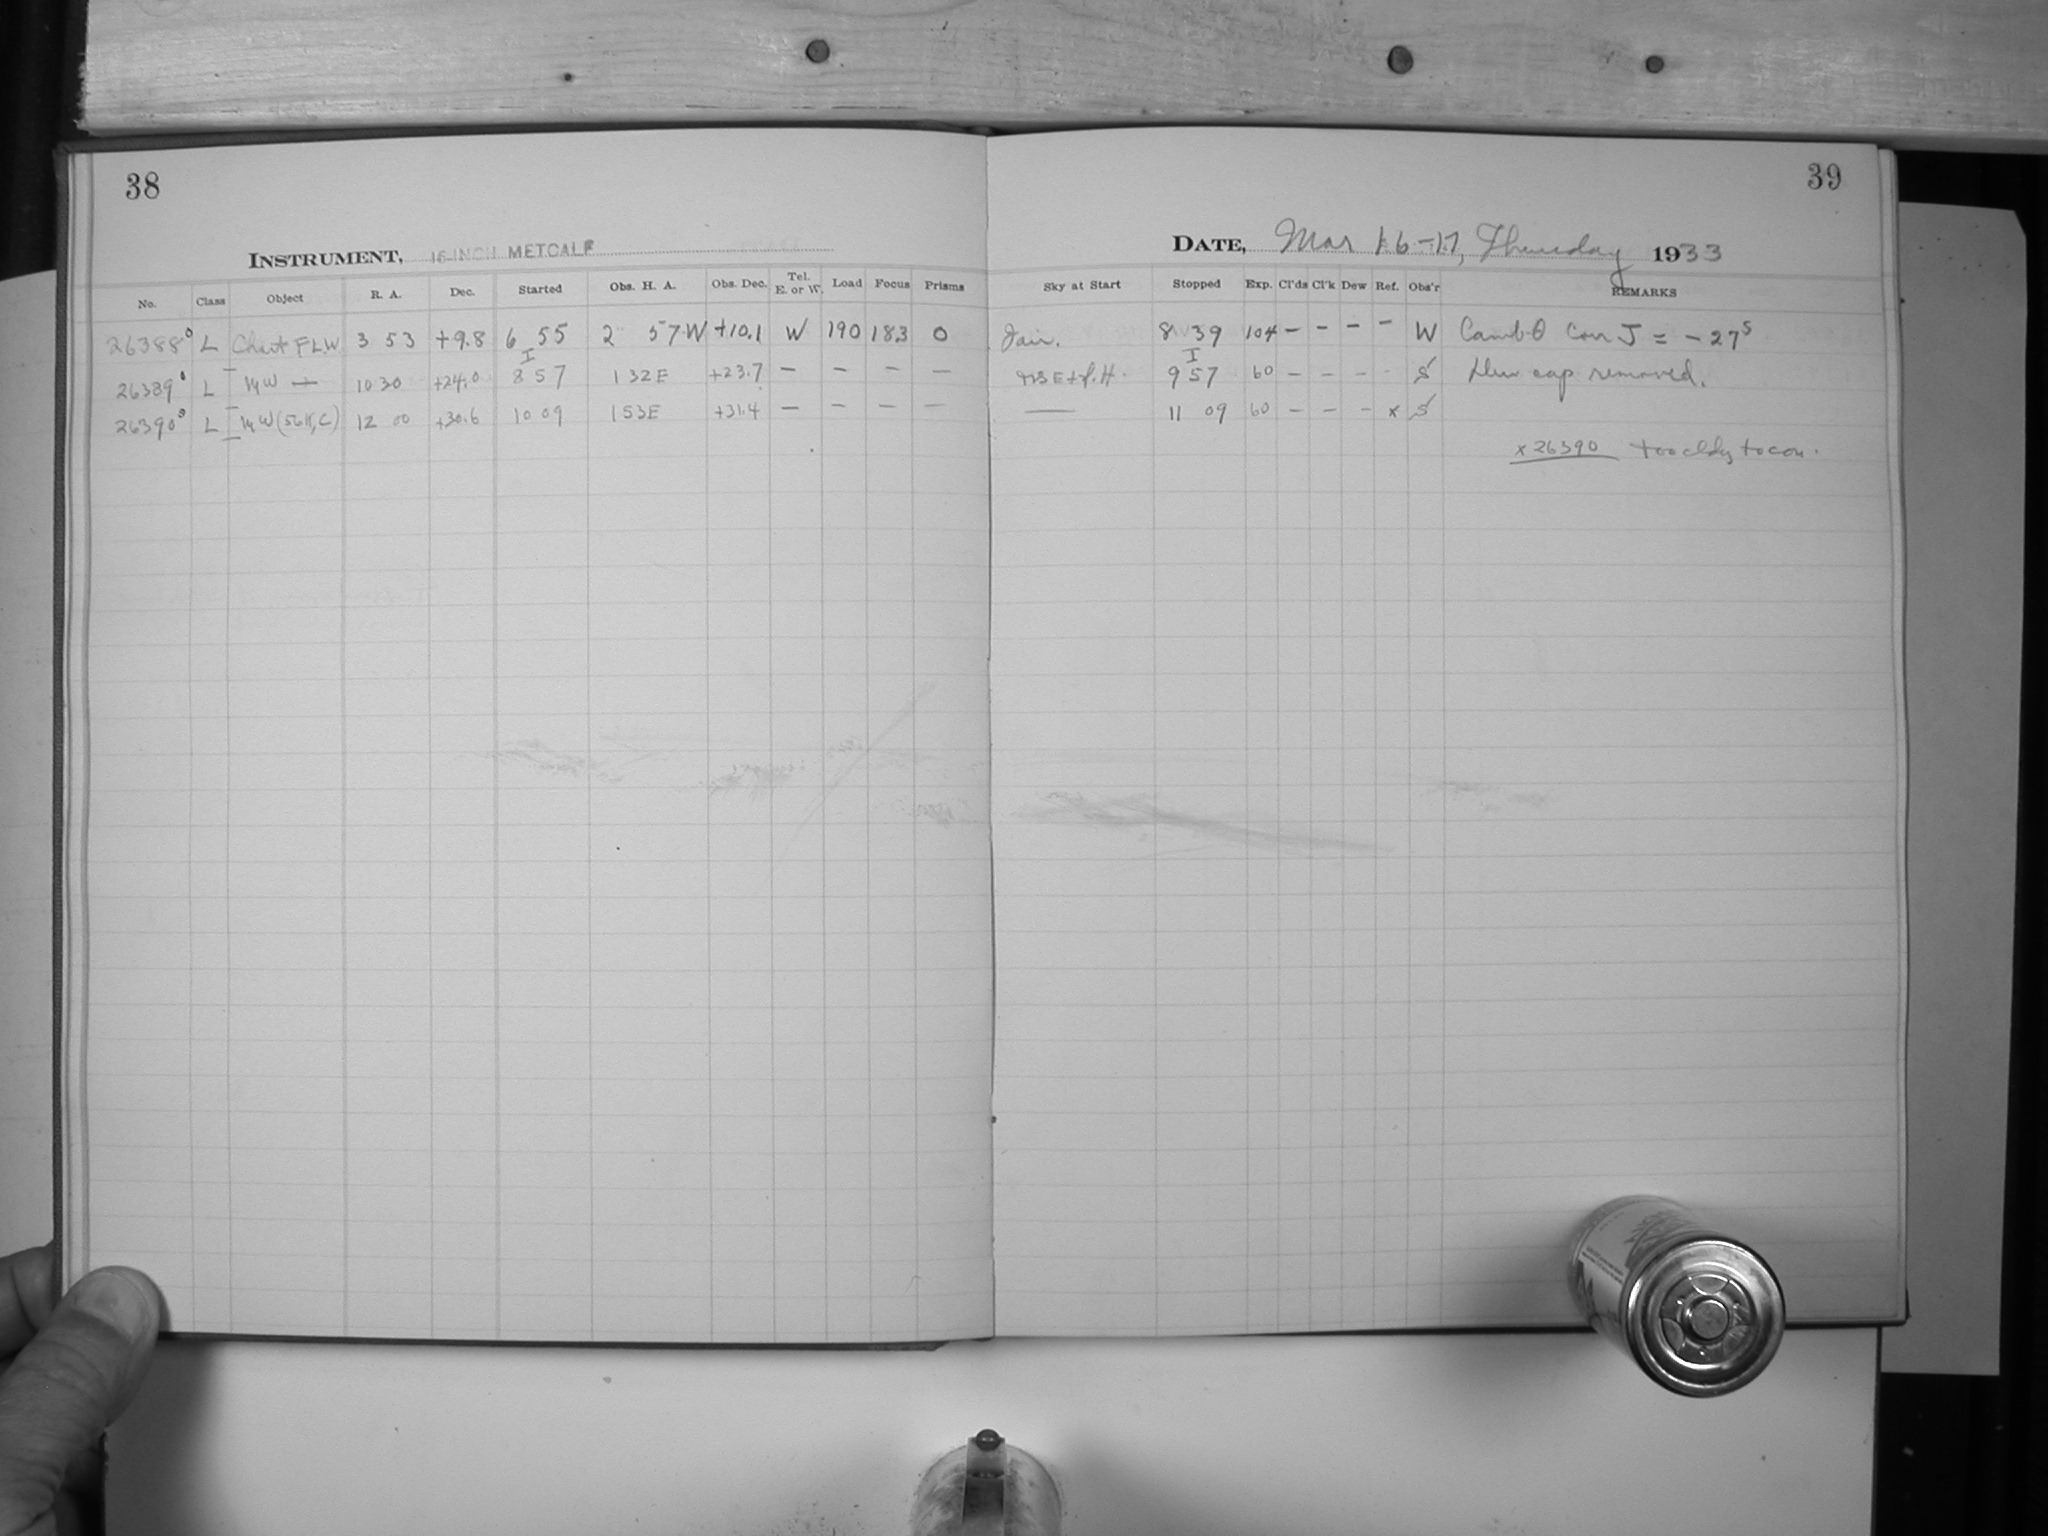 38
INSTRUMENT, 16-INCH METCALF
No. Class Object R. A. Dec. Started Obs. H. A. Obs. Dec. Tel. E. or W. Load Focus Prisms
26388⁰ L Chart FLW 3 53 +9.8 6 55 2 57 W +10.1 W 190 18.3 0
26389⁰ L MW — 10 30 +24.0 8 57 1 32 E +23.7 — — — —
26390⁰ L MW (56H, C) 12 00 +30.6 10 09 1 53 E +31.4 — — — —
39
DATE, Mar 16-17, Thursday 1933
Sky at Start Stopped Exp. Cl'ds Cl'k Dew Ref. Obs'r REMARKS
Fair. 8 39 104 - - - - W Camb Corr J = -27ˢ
9 57 60 - - - - S Dew cap removed.
— 11 09 60 - - - x S
x 26390 too cldy to con.